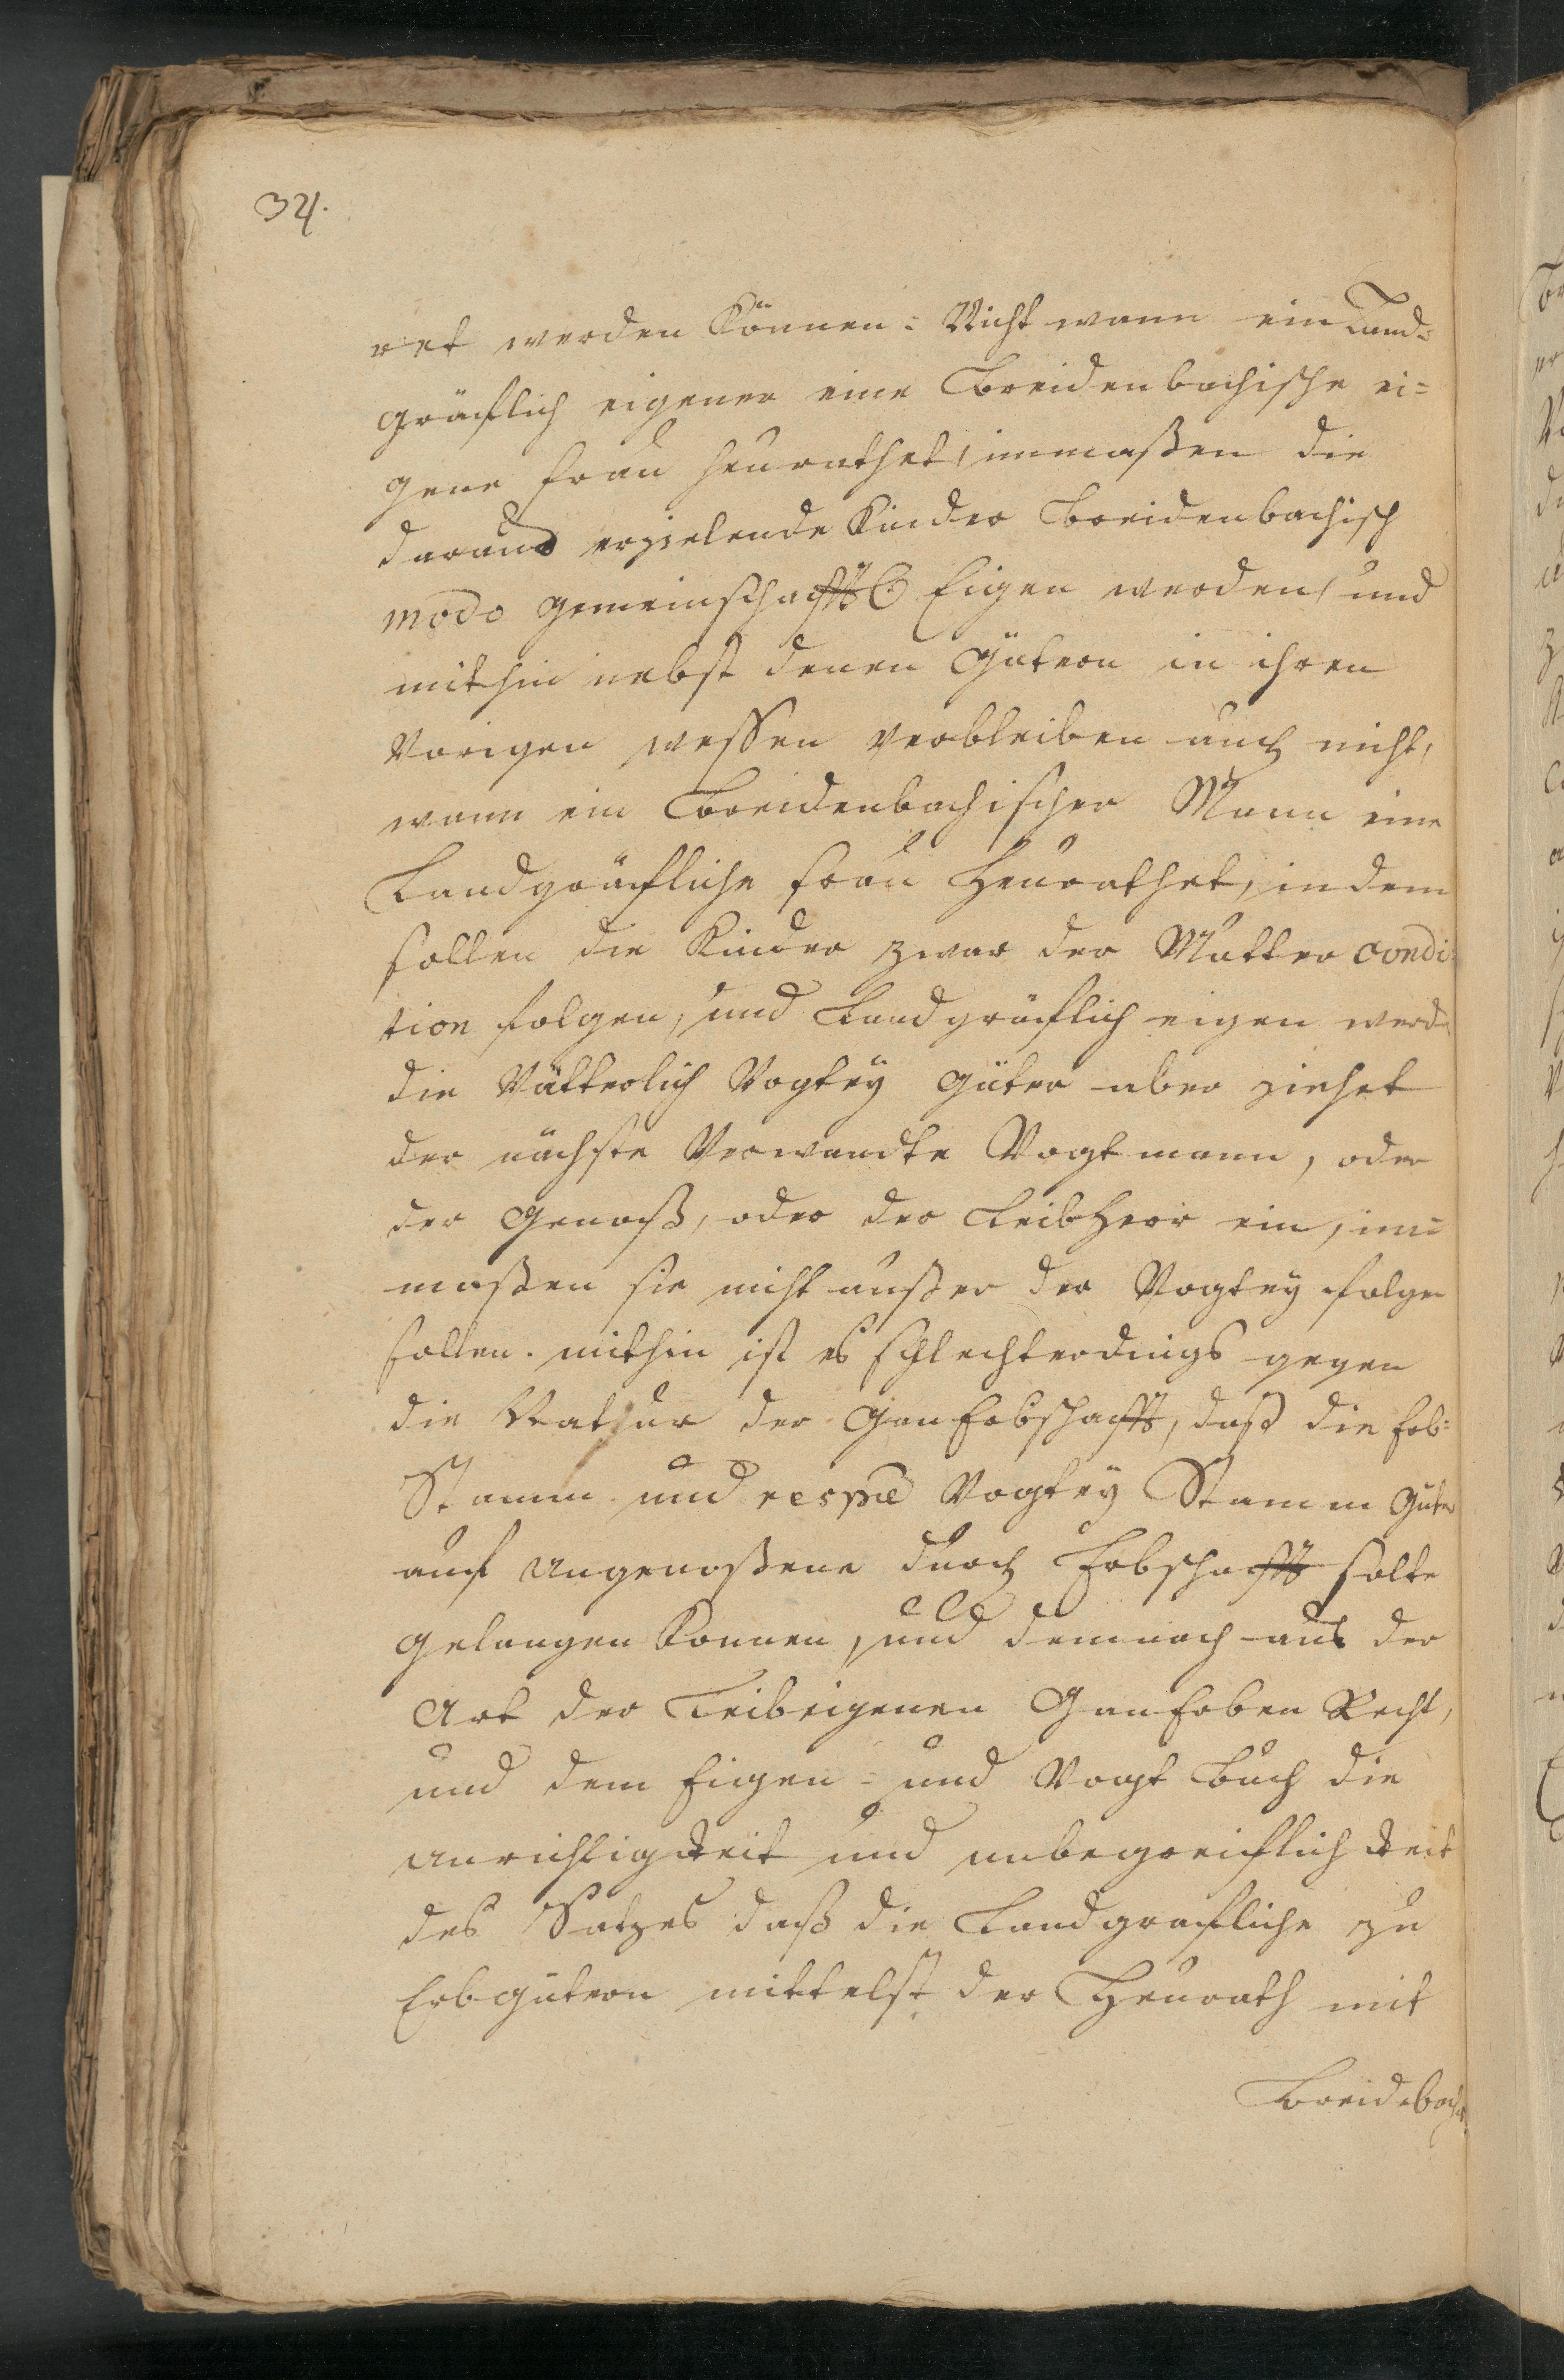 324.
ret werden können: Nicht wann ein Land-
gräflich eigener eine Breidenbachische ei=
gene frau heurathet, immaßen die
daraus erzielende Kinder Breidenbachisch
modo gemeinschafftl. Eigen werden, und
mithin nebst denen Gütern in ihren
Vorigen wessen verbleiben auch nicht,
wann ein Breidenbachischer Mann eine
Landgräfliche frau heurathet, indem
sollen die Kinder zwar der Mutter condi-
tion folgen, und Landgräflich eigen werden
die Vätterlich Vogtey Güter aber ziehet
der nächste Verwandte Vogtmann, oder
der Genoß, oder der Leibherr ein, im=
maßen sie nicht außer der Vogtey folgen
sollen. mithin ist es schlechterdings gegen
die Natur der GanErbschafft, daß die Erb=
Stamm und respe Vogtey Stamm Güter
auf ungenoßene durch Erbschafft solte
gelangen können, und demnach aus der
Art der Leibeigenen GanErben Recht,
und dem Eigen= und Vogt Buch die
unrichtigkeit und unbegreiflichkeit
des Satzes daß die Landgräfliche zu
Erbgütern mittelst der Heurath mit
Breidebach